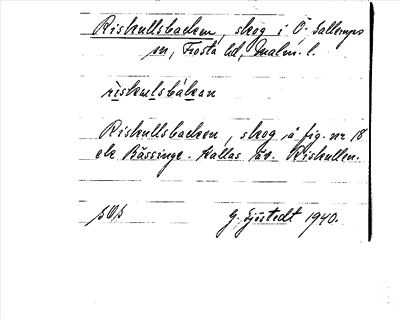 Riskullsbacken, skog i Ö. Sallerups
sn, Frosta hd, Malm. l.
riskulsbakan
Riskullsbacken, skog å fig. nr 18
ek Rässinge. Kallas äv. Riskullen.
SOS G. Sjöstedt 1940.